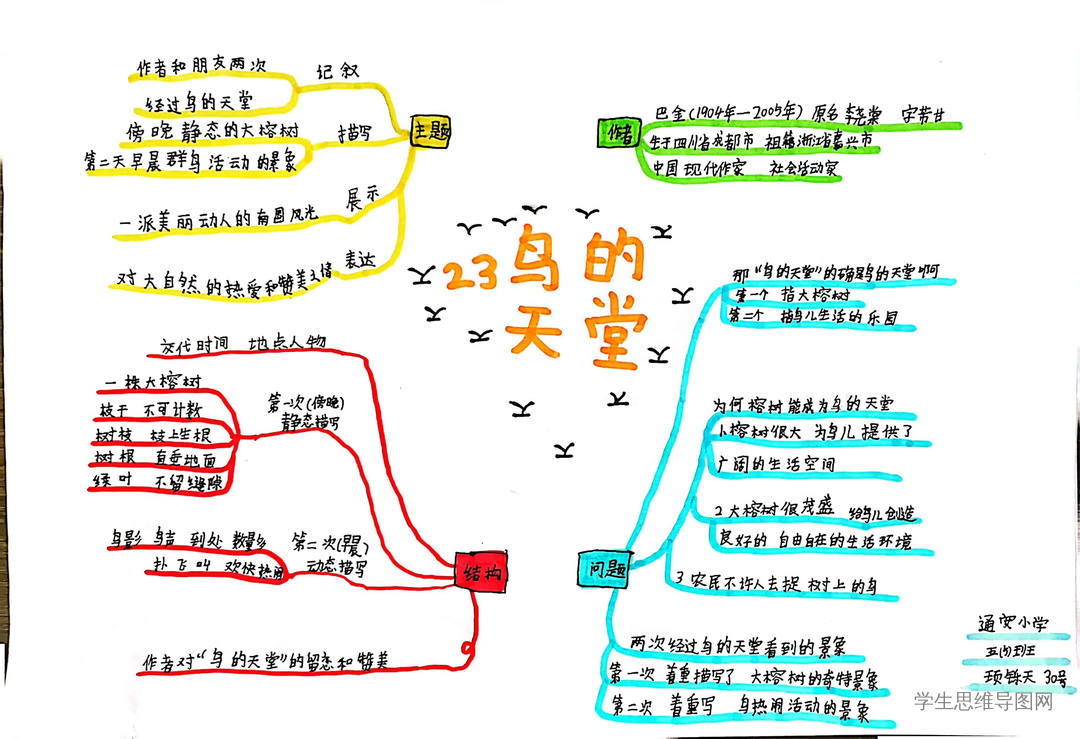 23鸟的
天堂
主题
记叙
作者和朋友两次
经过鸟的天堂
描写
傍晚 静态的大榕树
第二天早晨群鸟活动的景象
展示
一派美丽动人的南国风光
表达
对大自然的热爱和赞美之情
作者
巴金(1904年—2005年) 原名李尧棠 字芾甘
生于四川省成都市 祖籍浙江省嘉兴市
中国现代作家 社会活动家
结构
交代时间 地点人物
第一次(傍晚)
静态描写
一株大榕树
枝干 不可计数
树枝 枝上生根
树根 直垂地面
绿叶 不留缝隙
第二次(早晨)
动态描写
鸟影 鸟声 到处 数量多
扑 飞 叫 欢快热闹
作者对“鸟的天堂”的留恋和赞美
问题
那“鸟的天堂”的确是鸟的天堂啊
第一个 指大榕树
第二个 指鸟儿生活的乐园
为何榕树能成为鸟的天堂
1.榕树很大 为鸟儿提供了
广阔的生活空间
2大榕树很茂盛 给鸟儿创造
良好的 自由自在的生活环境
3农民不许人去捉树上的鸟
两次经过鸟的天堂看到的景象
第一次 着重描写了 大榕树的奇特景象
第二次 着重写 鸟热闹活动的景象
通安小学
30号
学生思维导图网